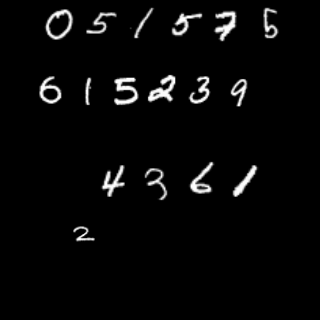 0 5 1 5 7 5
6 1 5 2 3 9
4 3 6 1
2